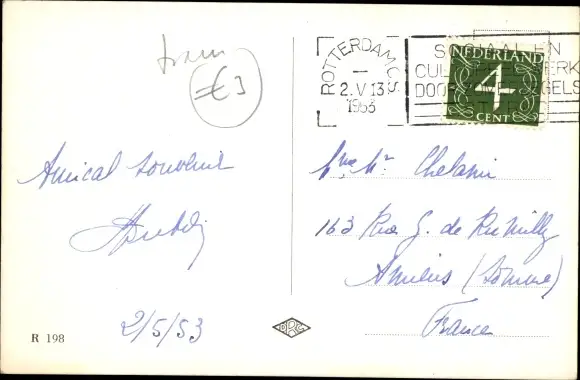 tram
€3
ROTTERDAM C.S.
2.V 13
1953
S
AAL EN
CUL
WERK
DOO
GELS
NEDERLAND
4
CENT
Amical souvenir
2/5/53
R 198
Mme Mr
163 Rue G. de Rumilly
Amiens (Somme)
France